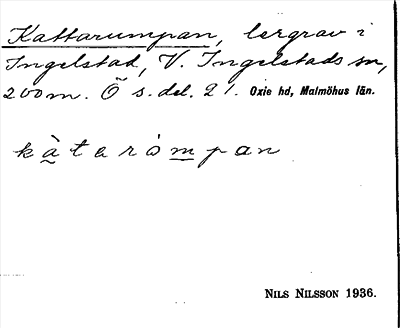 Kattarumpan, lergrav i
Ingelstad, V. Ingelstads sn,
200 m. Ö s. del. 21. Oxie hd, Malmöhus län.
kàtaròmpan
NILS NILSSON 1936.